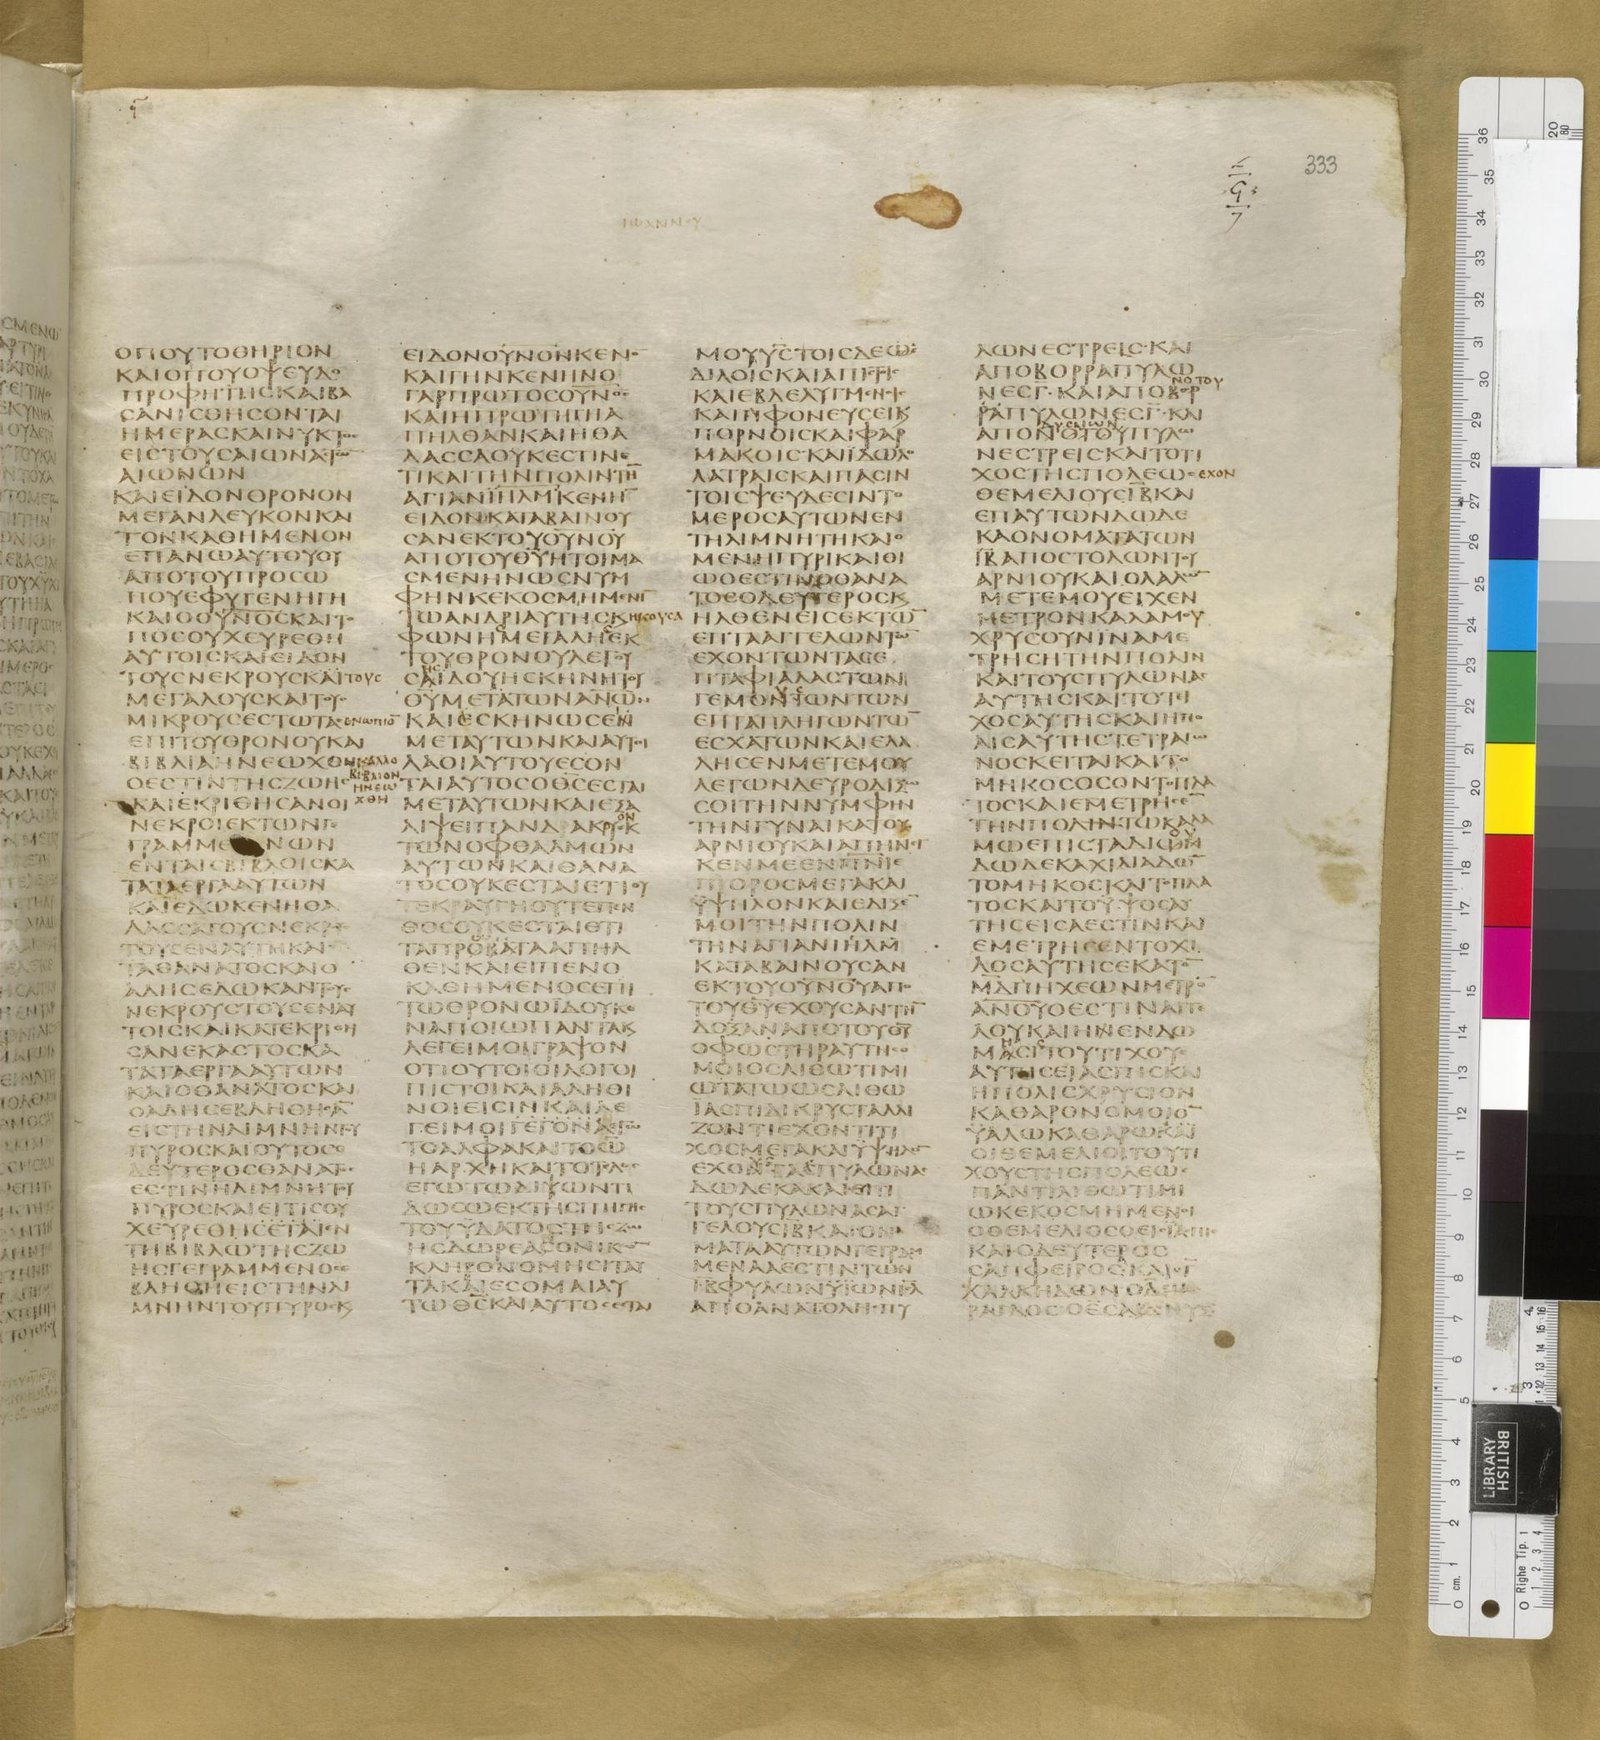 333
ΙΩΑΝΝΟΥ
ΟΠΟΥΤΟΘΗΡΙΟΝ
ΚΑΙΟΠΟΥΟΨΕΥΔΟ
ΠΡΟΦΗΤΗΣΚΑΙΒΑ
ΣΑΝΙΣΘΗΣΟΝΤΑΙ
ΗΜΕΡΑΣΚΑΙΝΥΚΤΟΣ
ΕΙΣΤΟΥΣΑΙΩΝΑΣΤΩ̅
ΑΙΩΝΩΝ
ΚΑΙΕΙΔΟΝΘΡΟΝΟΝ
ΜΕΓΑΝΛΕΥΚΟΝΚΑΙ
ΤΟΝΚΑΘΗΜΕΝΟΝ
ΕΠΑΝΩΑΥΤΟΥΟΥ
ΑΠΟΤΟΥΠΡΟΣΩ
ΠΟΥΕΦΥΓΕΝΗΓΗ
ΚΑΙΟΟΥΝΟΣΚΑΙΤΟ
ΠΟΣΟΥΧΕΥΡΕΘΗ
ΑΥΤΟΙΣΚΑΙΕΙΔΟΝ
ΤΟΥΣΝΕΚΡΟΥΣΚΑΙΤΟΥΣ
ΜΕΓΑΛΟΥΣΚΑΙΤΟΥΣ
ΜΙΚΡΟΥΣΕΣΤΩΤΑΣΕΝΩΠΙΟ̅
ΕΠΙΤΟΥΘΡΟΝΟΥΚΑΙ
ΒΙΒΛΙΑΗΝΕΩΧΘΗ ΚΑΙΑΛΛΟ
ΒΙΒΛΙΟΝ
ΗΝΕΩ
ΧΘΗ
ΟΕΣΤΙΝΤΗΣΖΩΗΣ
ΚΑΙΕΚΡΙΘΗΣΑΝΟΙ
ΝΕΚΡΟΙΕΚΤΩΝΓΕ
ΓΡΑΜΜΕΝΩΝ
ΕΝΤΑΙΣΒΙΒΛΟΙΣΚΑ
ΤΑΤΑΕΡΓΑΑΥΤΩΝ
ΚΑΙΕΔΩΚΕΝΗΘΑ
ΛΑΣΣΑΤΟΥΣΝΕΚΡΟΥΣ
ΤΟΥΣΕΝΑΥΤΗΚΑΙ
ΤΑΘΑΝΑΤΟΣΚΑΙΟ
ΑΔΗΣΕΔΩΚΑΝΤΟΥΣ
ΝΕΚΡΟΥΣΤΟΥΣΕΝΑΥ
ΤΟΙΣΚΑΙΚΑΤΕΚΡΙΘΗ
ΣΑΝΕΚΑΣΤΟΣΚΑ
ΤΑΤΑΕΡΓΑΑΥΤΩΝ
ΚΑΙΟΘΑΝΑΤΟΣΚΑΙ
ΟΑΔΗΣΕΒΛΗΘΗΣΑ̅
ΕΙΣΤΗΝΛΙΜΝΗΝΤΟΥ
ΠΥΡΟΣΚΑΙΟΥΤΟΣΟ
ΔΕΥΤΕΡΟΣΘΑΝΑΤΟΣ
ΕΣΤΙΝΗΛΙΜΝΗΤΟΥ
ΠΥΡΟΣΚΑΙΕΙΤΙΣΟΥ
ΧΕΥΡΕΘΗΣΕΤΑΙΕΝ
ΤΗΒΙΒΛΩΤΗΣΖΩ
ΗΣΓΕΓΡΑΜΜΕΝΟΣ
ΒΛΗΘΗΕΙΣΤΗΝΛΙ
ΜΝΗΝΤΟΥΠΥΡΟΣΚ
ΕΙΔΟΝΟΥΝΟΝΚΕΝΟ̅
ΚΑΙΓΗΝΚΕΝΗΝΟ
ΓΑΡΠΡΩΤΟΣΟΥΝΟΣ
ΚΑΙΗΠΡΩΤΗΓΗΑ
ΠΗΛΘΑΝΚΑΙΗΘΑ
ΛΑΣΣΑΟΥΚΕΣΤΙΝΕ
ΤΙΚΑΙΤΗΝΠΟΛΙΝΤΗ̅
ΑΓΙΑΝΙΗΛΜΚΕΝΗ̅
ΕΙΔΟΝΚΑΤΑΒΑΙΝΟΥ
ΣΑΝΕΚΤΟΥΟΥΝΟΥ
ΑΠΟΤΟΥΘΥΗΤΟΙΜΑ
ΣΜΕΝΗΝΩΣΝΥΜ
ΦΗΝΚΕΚΟΣΜΗΜΕΝΗ̅
ΤΩΑΝΔΡΙΑΥΤΗΣΚΗΚΟΥΣΑ
ΦΩΝΗΜΕΓΑΛΗΣΕΚ
ΤΟΥΘΡΟΝΟΥΛΕΓΟΥ
ΣΑΙΔΟΥΗΣΚΗΝΗΤΟΥ
ΘΥΜΕΤΑΤΩΝΑΝΩΝ
ΚΑΙΕΣΚΗΝΩΣΕΝ
ΜΕΤΑΥΤΩΝΚΑΙΑΥΤΟΙ
ΛΑΟΙΑΥΤΟΥΕΣΟΝ
ΤΑΙΑΥΤΟΣΟΘΣΕΣΤΑΙ
ΜΕΤΑΥΤΩΝΚΑΙΕΞΑ
ΛΙΨΕΙΠΑΝΔΑΚΡΥΕΚ
ΤΩΝΟΦΘΑΛΜΩΝ
ΑΥΤΩΝΚΑΙΘΑΝΑ
ΤΟΣΟΥΚΕΣΤΑΙΕΤΙΟΥ
ΤΕΚΡΑΥΓΗΟΥΤΕΠΕΝ
ΘΟΣΟΥΚΕΣΤΑΙΕΤΙ
ΤΑΠΡΟΒΑΤΑΑΠΗΛ
ΘΕΝΚΑΙΕΙΠΕΝΟ
ΚΑΘΗΜΕΝΟΣΕΠΙ
ΤΩΘΡΟΝΩΙΔΟΥΚΕ
ΝΑΠΟΙΩΠΑΝΤΑΚ
ΛΕΓΕΙΜΟΙΓΡΑΨΟΝ
ΟΤΙΟΥΤΟΙΟΙΛΟΓΟΙ
ΠΙΣΤΟΙΚΑΙΑΛΗΘΙ
ΝΟΙΕΙΣΙΝΚΑΙΛΕ
ΓΕΙΜΟΙΓΕΓΟΝΑΕΓΩ
ΤΟΑΛΦΑΚΑΙΤΟΩ
ΗΑΡΧΗΚΑΙΤΟΤΕΛΟΣ
ΕΓΩΤΩΔΙΨΩΝΤΙ
ΔΩΣΩΕΚΤΗΣΠΗΓΗΣ
ΤΟΥΥΔΑΤΟΣΤΗΣΖΩ
ΗΣΔΩΡΕΑΣΟΝΙΚΩ̅
ΚΛΗΡΟΝΟΜΗΣΙΤΑΥ
ΤΑΚΑΙΕΣΟΜΑΙΑΥ
ΤΩΘΣΚΑΙΑΥΤΟΣΕΣΤΑΙ
ΜΟΥΥΣΤΟΙΣΔΕΩΣ
ΔΙΛΟΙΣΚΑΙΑΠΙΣΤΟΙΣ
ΚΑΙΕΒΔΕΛΥΓΜΕΝΟΙΣ
ΚΑΙΦΟΝΕΥΣΕΙΚ
ΠΟΡΝΟΙΣΚΑΙΦΑΡ
ΜΑΚΟΙΣΚΑΙΙΔΩΛΟ
ΛΑΤΡΑΙΣΚΑΙΠΑΣΙΝ
ΤΟΙΣΨΕΥΔΕΣΙΝΤΟ
ΜΕΡΟΣΑΥΤΩΝΕΝ
ΤΗΛΙΜΝΗΤΗΚΑΙΟ
ΜΕΝΗΠΥΡΙΚΑΙΘΙ
ΩΟΕΣΤΙΝΟΘΑΝΑ
ΤΟΣΟΔΕΥΤΕΡΟΣΚ
ΗΛΘΕΝΕΙΣΕΚΤΩ̅
ΕΠΤΑΑΓΓΕΛΩΝΤΩ̅
ΕΧΟΝΤΩΝΤΑΣΕ
ΠΤΑΦΙΑΛΑΣΤΩΝ
ΓΕΜΟΝΤΩΝΤΩΝ
ΕΠΤΑΠΛΗΓΩΝΤΩ̅
ΕΣΧΑΤΩΝΚΑΙΕΛΑ
ΛΗΣΕΝΜΕΤΕΜΟΥ
ΛΕΓΩΝΔΕΥΡΟΔΙΞΩ
ΣΟΙΤΗΝΝΥΜΦΗΝ
ΤΗΝΓΥΝΑΙΚΑΤΟΥ
ΑΡΝΙΟΥΚΑΙΑΠΗΝΕΓ
ΚΕΝΜΕΕΝΠΝΙΕ
ΠΙΟΡΟΣΜΕΓΑΚΑΙ
ΥΨΗΛΟΝΚΑΙΕΔΙΞΕ̅
ΜΟΙΤΗΝΠΟΛΙΝ
ΤΗΝΑΓΙΑΝΙΗΛΜ
ΚΑΤΑΒΑΙΝΟΥΣΑΝ
ΕΚΤΟΥΟΥΝΟΥΑΠΟ
ΤΟΥΘΥΕΧΟΥΣΑΝΤΗ̅
ΔΟΞΑΝΑΠΟΤΟΥΘΥ
ΟΦΩΣΤΗΡΑΥΤΗΣΟ
ΜΟΙΟΣΛΙΘΩΤΙΜΙ
ΩΤΑΤΩΩΣΛΙΘΩ
ΙΑΣΠΙΔΙΚΡΥΣΤΑΛΛΙ
ΖΟΝΤΙΕΧΟΝΤΙΤΙ
ΧΟΣΜΕΓΑΚΑΙΥΨΗΛΟ̅
ΕΧΟΝΤΑΣΠΥΛΩΝΑΣ
ΔΩΔΕΚΑΚΑΙΕΠΙ
ΤΟΥΣΠΥΛΩΝΑΣΑΓ
ΓΕΛΟΥΣΙΒΚΑΙΟΝΟ
ΜΑΤΑΑΥΤΩΝΓΕΓΡΑΜ
ΜΕΝΑΕΣΤΙΝΤΩΝ
ΙΒΦΥΛΩΝΥΙΩΝΙΗΛ
ΑΠΟΑΝΑΤΟΛΗΣΠΥ
ΛΩΝΕΣΤΡΕΙΣΚΑΙ
ΑΠΟΒΟΡΡΑΠΥΛΩ
ΝΕΣΓΚΑΙΑΠΟΒΟΡ ΝΟΤΟΥ
ΡΑΠΥΛΩΝΕΣΓΚΑΙ
ΑΠΟΝΟΤΟΥΠΥΛΩ ΔΥΣΜΩΝ
ΝΕΣΤΡΕΙΣΚΑΙΤΟΤΙ
ΧΟΣΤΗΣΠΟΛΕΩΣΕΧΟΝ
ΘΕΜΕΛΙΟΥΣΙΒΚΑΙ
ΕΠΑΥΤΩΝΔΩΔΕ
ΚΑΟΝΟΜΑΤΑΤΩΝ
ΙΒΑΠΟΣΤΟΛΩΝΤΟΥ
ΑΡΝΙΟΥΚΑΙΟΛΑΛΩ̅
ΜΕΤΕΜΟΥΕΙΧΕΝ
ΜΕΤΡΟΝΚΑΛΑΜΟΥ
ΧΡΥΣΟΥΝΙΝΑΜΕ
ΤΡΗΣΗΤΗΝΠΟΛΙΝ
ΚΑΙΤΟΥΣΠΥΛΩΝΑΣ
ΑΥΤΗΣΚΑΙΤΟΤΙ
ΧΟΣΑΥΤΗΣΚΑΙΗΠΟ
ΛΙΣΑΥΤΗΣΤΕΤΡΑΓΩ
ΝΟΣΚΕΙΤΑΙΚΑΙΤΟ
ΜΗΚΟΣΟΣΟΝΤΟΠΛΑ
ΤΟΣΚΑΙΕΜΕΤΡΗΣΕ̅
ΤΗΝΠΟΛΙΝΤΩΚΑΛΑ
ΜΩΕΠΙΣΤΑΔΙΩΝ
ΔΩΔΕΚΑΧΙΛΙΑΔΩ̅
ΤΟΜΗΚΟΣΚΑΙΤΟΠΛΑ
ΤΟΣΚΑΙΤΟΥΨΟΣΑΥ
ΤΗΣΕΙΣΑΕΣΤΙΝΚΑΙ
ΕΜΕΤΡΗΣΕΝΤΟΧΙ
ΛΟΣΑΥΤΗΣΕΚΑΤΟ̅
ΜΔΠΗΧΕΩΝΜΕΤΡΟ̅
ΑΝΟΥΟΕΣΤΙΝΑΓΓΕ
ΛΟΥΚΑΙΗΝΕΝΔΩ
ΜΑΣΙΤΟΥΤΙΧΟΥΣ
ΑΥΤΗΣΕΙΑΣΠΙΣΚΑΙ
ΗΠΟΛΙΣΧΡΥΣΙΟΝ
ΚΑΘΑΡΟΝΟΜΟΙΟ̅
ΥΑΛΩΚΑΘΑΡΩΚΑΙ
ΟΙΘΕΜΕΛΙΟΙΤΟΥΤΙ
ΧΟΥΣΤΗΣΠΟΛΕΩΣ
ΠΑΝΤΙΛΙΘΩΤΙΜΙ
ΩΚΕΚΟΣΜΗΜΕΝΟΙ
ΟΘΕΜΕΛΙΟΣΟΕΙΣΙΑΣΠΙΣ
ΚΑΙΟΔΕΥΤΕΡΟΣ
ΣΑΠΦΕΙΡΟΣΚΑΙΟΓ
ΧΑΛΚΗΔΩΝΟΔΣΜΑ
ΡΑΓΔΟΣΟΕΣΑΡΔΟΝΥΞ
BRITISH
LIBRARY